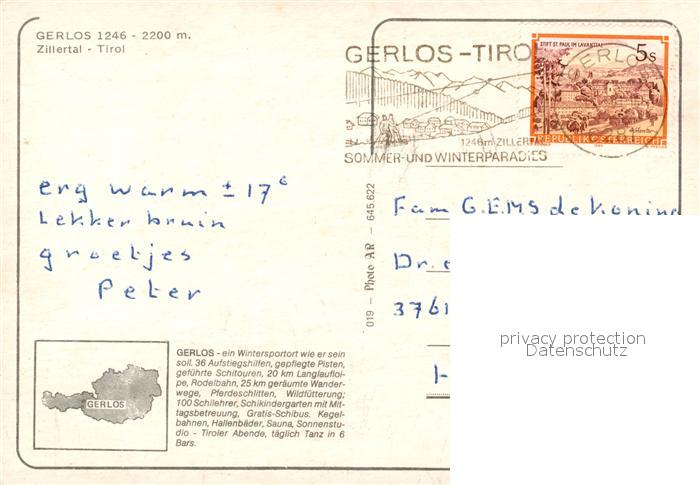 GERLOS 1246 - 2200 m.
Zillertal - Tirol
GERLOS-TIRO
1246m ZILLERTAL
SOMMER-UND WINTERPARADIES
STIFT ST. PAUL IM LAVANTTAL
5s
REPUBLIK ÖSTERREICH
GERLOS
erg warm ± 17°
Lekker bruin
groetjes
Peter
019 - Photo AR - 645.622
Fam G.E.M.S de Koning
Dr.
3761
H
privacy protection
Datenschutz
GERLOS
GERLOS - ein Wintersportort wie er sein
soll. 36 Aufstiegshilfen, gepflegte Pisten,
geführte Schitouren, 20 km Langlaufloi-
pe, Rodelbahn, 25 km geräumte Wander-
wege, Pferdeschlitten, Wildfütterung;
100 Schilehrer, Schikindergarten mit Mit-
tagsbetreuung, Gratis-Schibus. Kegel-
bahnen, Hallenbäder, Sauna, Sonnenstu-
dio - Tiroler Abende, täglich Tanz in 6
Bars.